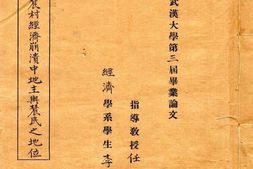 武漢大學第三屆畢業論文
農村經濟崩潰中地主與農民之地位
指導教授任
經濟學系學生李